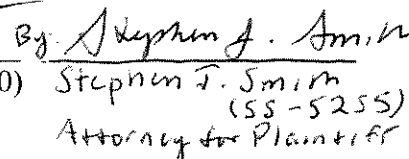 By Stephen J. Smith
0) Stephen J. Smith
(SS-5255)
Attorney for Plaintiff